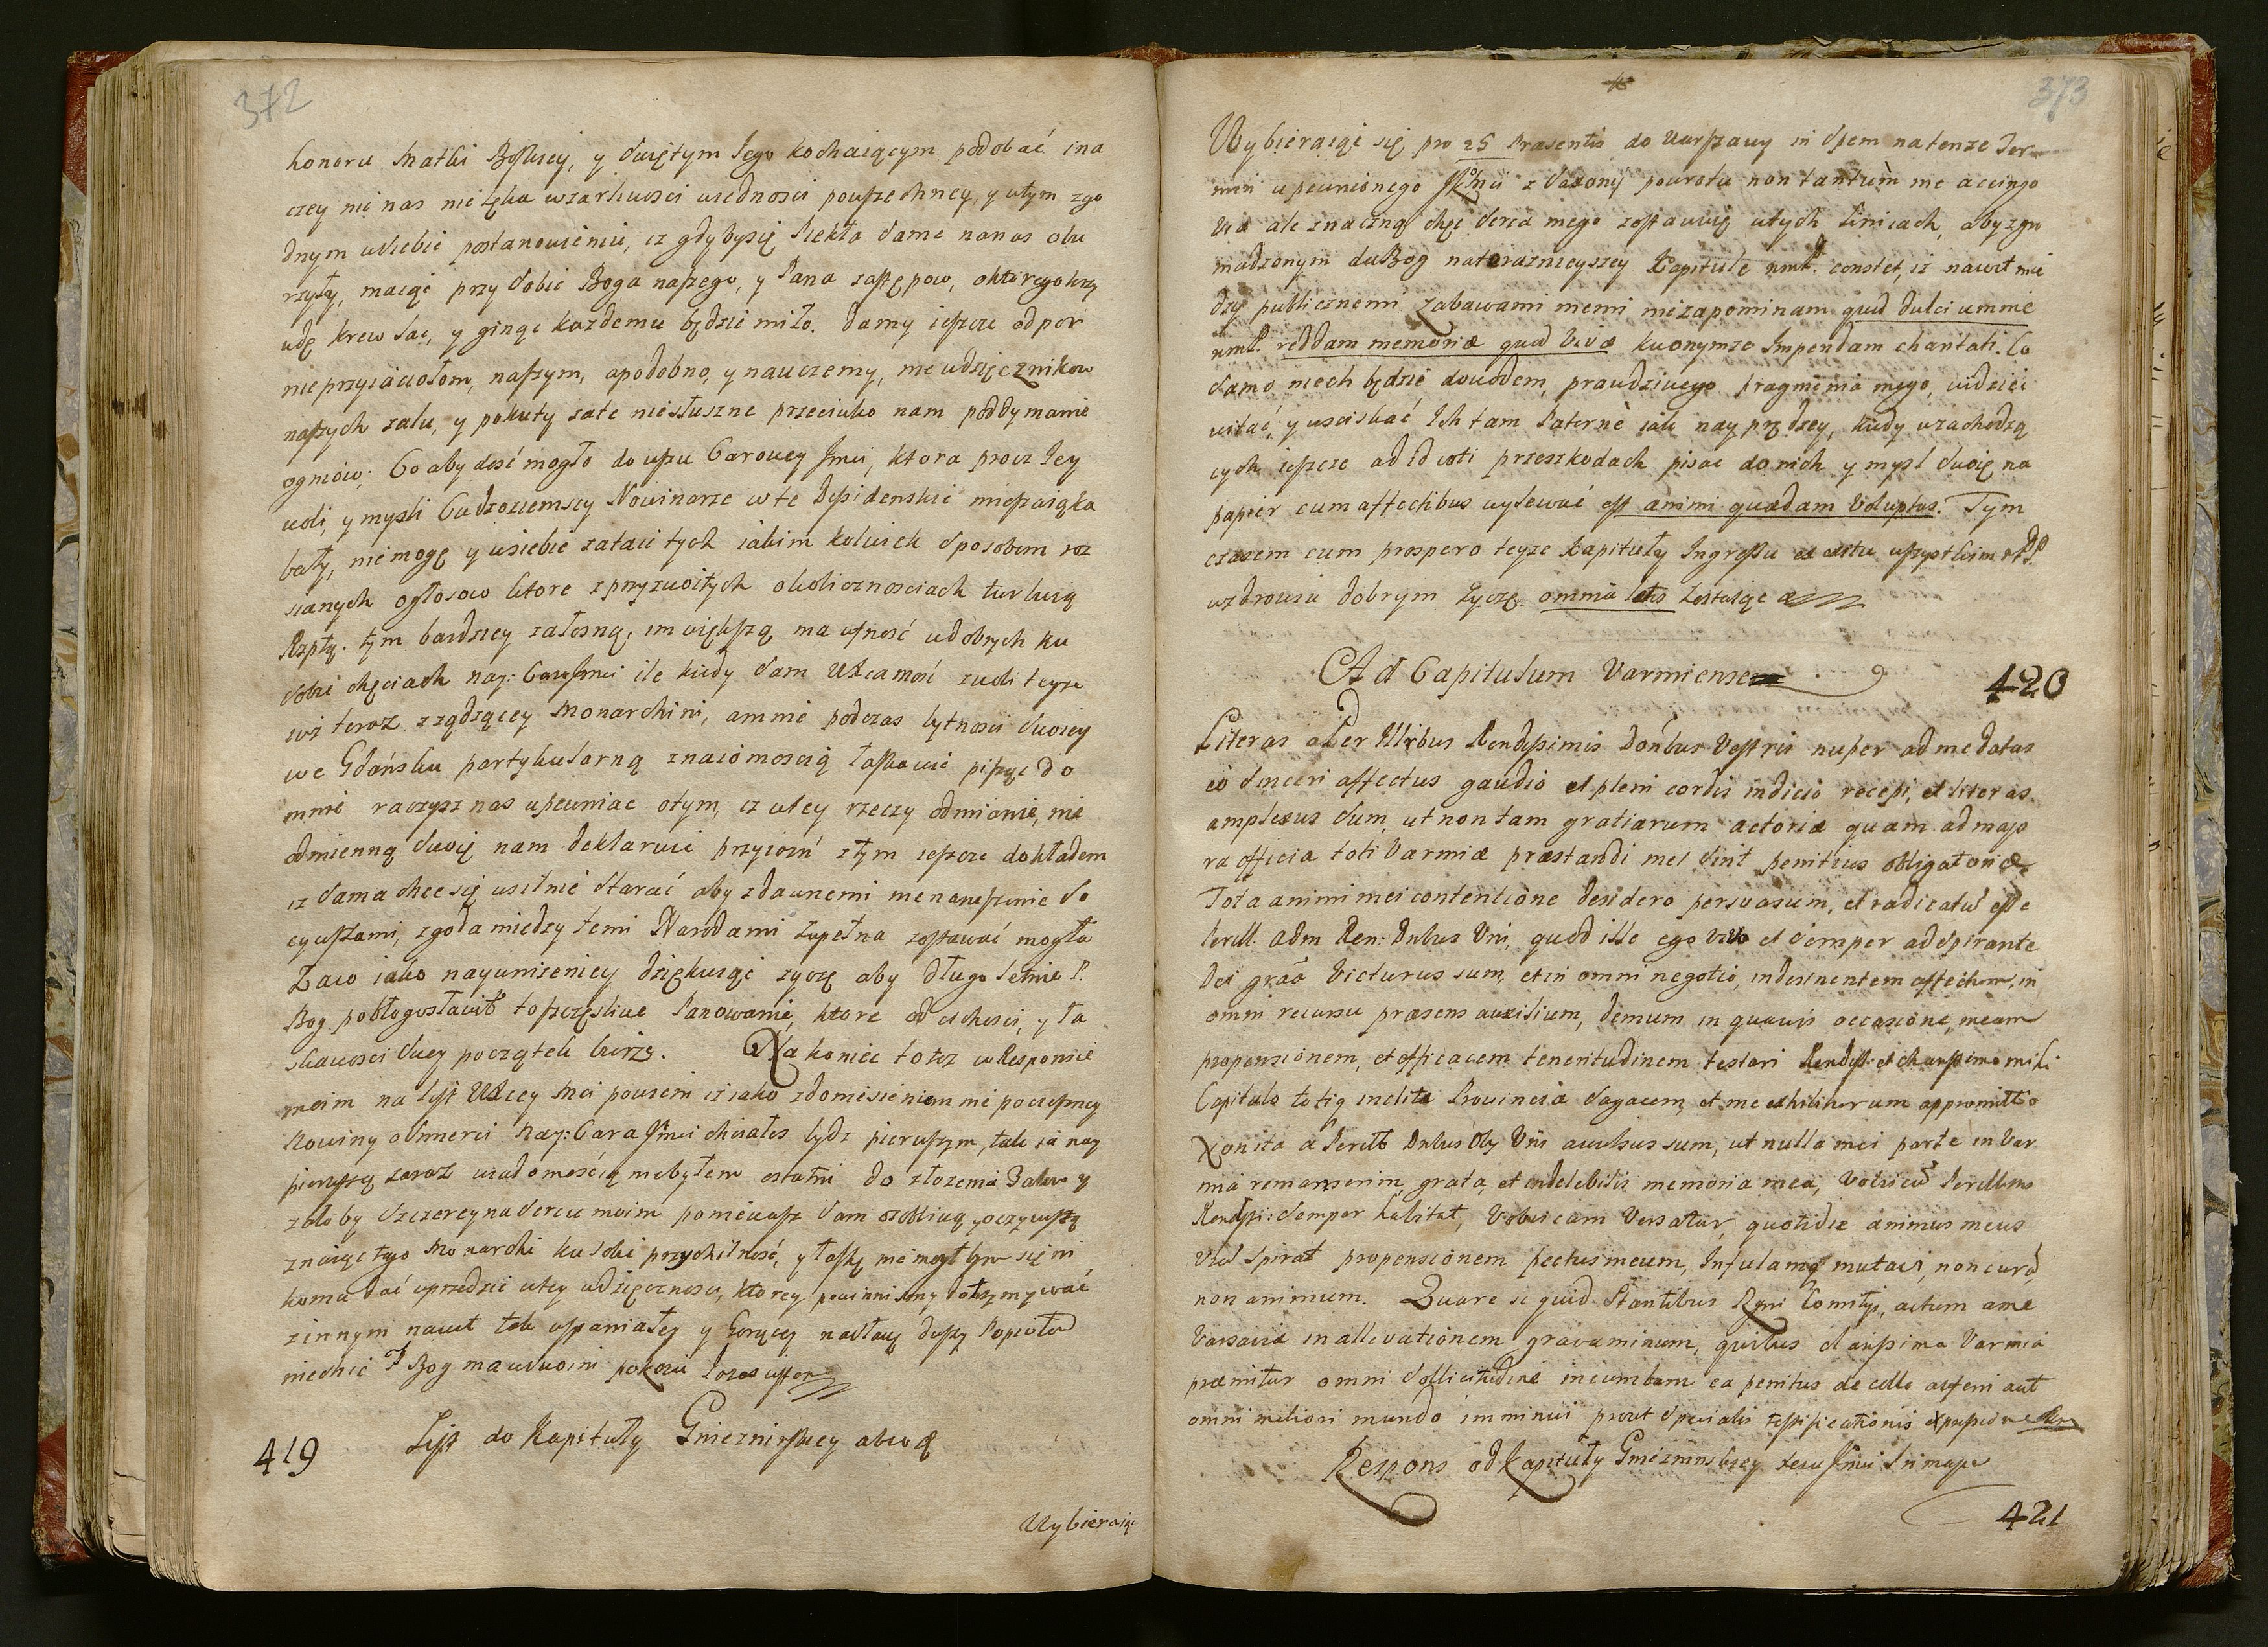 372
honoru Matki Boskiey, y Swiętym Jego kochaiącym podobać ina
czey nic nas nie lęka wzarliwosci wiednosci powszechney, y wtym zgo
dnym usiebie postanowieniu, iz gdybysię Piekła same nanas obu
rzyły, maiąc przy sobie Boga naszego, y Pana zastępow, oktorego krzy
udę krew lac, y ginąc kazdemu będzie miło. Damy ieszcze odpor
nieprzyiaciołom, naszym, apodobno, y nauczemy, niewdzięcznikow
naszych zalu, y pokuty zate niesłuszne przeciwko nam poddymanie
ogniow; Co aby dosć mogło do uszu Carowey Jmci, ktora procz Jey
woli, y mysli Cudzoziemscy Nowinarze w te
bały, niemogę y usiebie zataic tych iakim kolwiek sposobem roz
sianych ogłosow ktore z przyzwoitych okolicznosciach turbuią
Rzptą. tym bardziey załosną, im większą ma ufnosć udobrych ku
sobie chęciach nay: Cary Jmci ile kiedy sam zwoli teyze
iuz teraz rządzącey Monarchini, amnie podczas bytnosci swoiey
we Gdańsku partykularną znaiomoscią łaskawie pisząc do
mnie raczysz nas upewniac otym, iz wtey rzeczy odmianie, nie
odmienną swoię nam deklaruie przyiazń ztym ieszcze dokładem
iz sama chce się usilnie starać aby zdawnemi nienaruszenie So
cyuszami, zgoda miedzy temi Narodami zupełna zostawać mogła
Zaco iako nayunizeniey dziękuiąc zyczę aby długo letnie P.
Bog pobłogosławił toszczęsliwe Panowanie, ktore od cichosci, y ła
skawosci swey początek bierze. Na koniec totez w Responsie
moim na list Mci powiem iz iako zdoniesieniem nie pocieszney
Nowiny osmierci Nay: Cara Jmci chciałes bydz pierwszym, tak ia nay
pierwszą zaraz wiadomością niebyłem ostatni do złozenia zalow y
załoby szczerey naserca moim poniewasz sam osobliwą, yoczywistą
znaiąc tego Monarchi ku sobie przychilnosć, y łaskę nie mogłbym się ni
komu dać uprzedzic wtey wdzięcznosci, ktorey powinnismy dotrzymywać
zinnym nawet tak wspaniałey y Goniącey nasławę duszy Popiołow
niechie P Bog ma wswoim pokoiu
419 List do Kapituły Gnieznieńskiey
Wybieraiąc
373
Wybieraiąc się pro 25 Praesentis do Warszawy in spem natenze Ter
min upewnionego JKMci z Saxonij powrotu non tantum me accingo
via ale znaczną chęc serca mego zostawuię wtych liniach, aby zgro
madzonym daBog nateraznieyszey Kapitule constet, iz nawet mie
dzy publicznemi zabawami memi niezapominam quid dulci
reddam memoriae quid vivae kuonymze Impendam charitati. Co
samo niech będzie dowodem, prawdziwego pragnienia mego, widziec
witać, y usciskać Ich tam Paterne iak nayprędzey, kiedy wzachodzą
cych ieszcze ad id voti przeszkodach pisac do nich y mysl swoię na
papier cum affectibus wylewać est animi quaedam voluptas. Tym
czasem cum prospero teyze Kapituły Ingressu et exitu wszystkim
wzdrowiu dobrym zyczę omnia laeta zostaiąc
Ad Capitulum Varmiense 420
Literas a Per Illribus Rendissimis Donbus Vestris nuper ad me datas
eo sinceri affectus gaudio et pleni cordis indicio recepi, et literas
amplexus sum, ut non tam gratiarum actoriae quam ad majo
ra officia toti Varmiae praestandi mei sint penitius obligatoriae
Tota animi mei contentione desidero persvasum, et radicatum esse
Perill. adm Ren: Dnbus Vris, quod ille ego vivo et semper adspirante
Dei gratia victurus sum, et in omni negotio, indesinentem affectum, in
omni recursu praesens auxilium, demum in quavis occasione, meam
propensionem, et efficacem teneritudinem testari Rendiss. et charissimo mihi
Capitulo totiq inclitae Provinciae satagam, et me exhibiturum appromitto
Non ita a Perill Dnbus Vris avulsus sum, ut nulla mei parte in Var
mia remanserim, grata, et indelebilis memoria mea, Vobiscum Perillbus
Rendssi: semper habitat, Vobiscum versatur, quotidie animus meus
Vos spirat propensionem pectus meum, Infulamq mutavi, non curam
non animum. Quare si quid stantibus Regni Comitys, actum a me
Varsaviae in allevationem gravaminum, quibus charissima Varmia
praemitur omni sollicitudine incumbam ea penitus de collo auferri aut
omni meliori mundo imminui prout specialis testificationis expressione
Respons od Kapituły Gnieznienskiey
421